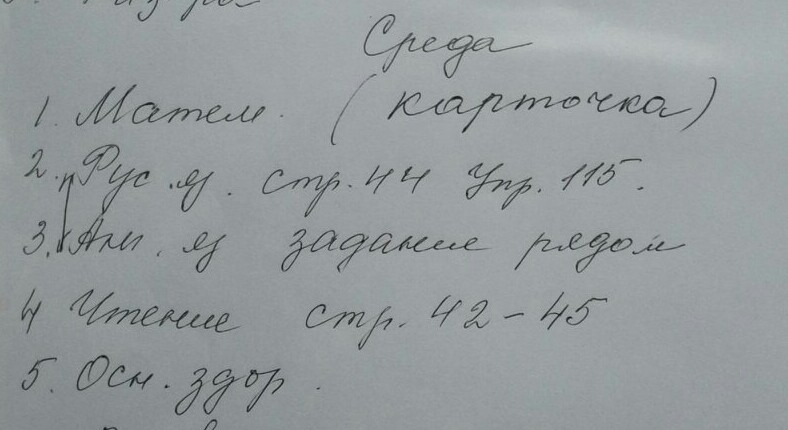 Среда
1. Матем. (карточка)
2. Рус. яз. стр. 44 Упр. 115.
3. Анг. яз задание рядом
4 Чтение стр. 42-45
5. Осн. здор.